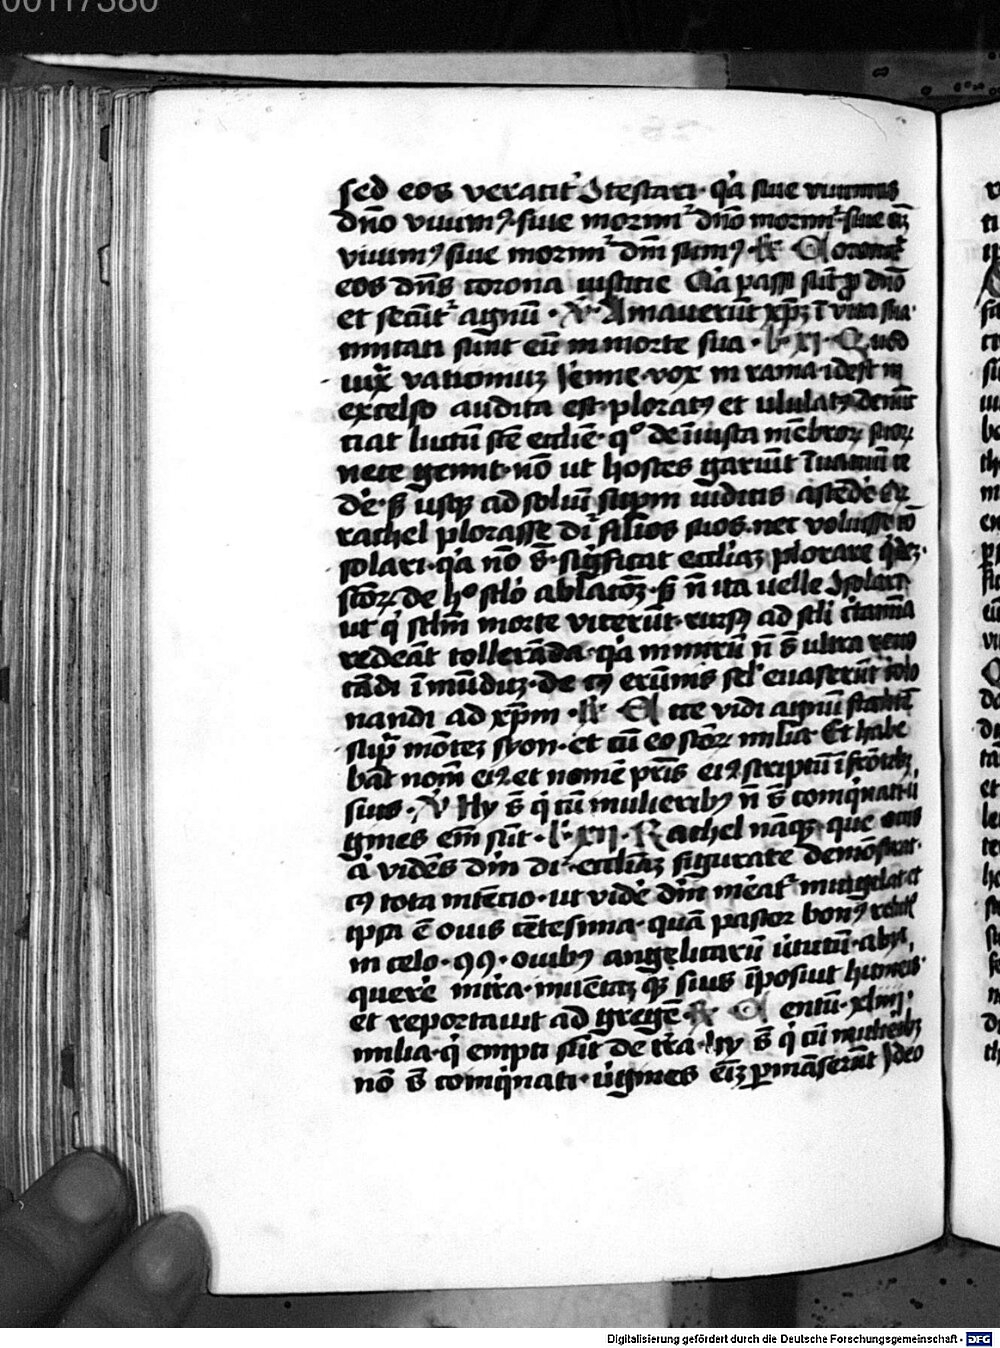 00117380
sed eos veracit᷑ ꝯtestari· q̇a siue viuimus
dn̄o viuimꝰ· siue morimr̄ dn̄o morimr̄· siue
viuimꝰ siue morimr̄ dn̄i sumꝰ· ℟ Coronauit
eos dn̄s corona iusticie Q̇a passi sūt ꝓ dn̄o
et secūt᷑ agnū · ℣· Amauerūt xp̄ꝫ ī vita sua·
imitati sūnt eū in morte sua · l· xi· Quod
iux̄ vaticiniuꝫ Jeīme· vox in rama· id est in
excelso audita est· ploratꝰ et ululatꝰ
ciat luctū scē eccīie· qͦ de iīusta mēbroꝝ suoꝝ
nece gemit· nō ut hostes gariūt ī uacuū re
de᷑· sꝫ usqꝫ ad soluī supni iudicis ascēde᷑
rachel plorasse di᷑ filios suos· nec voluisse cō
solari· q̇a nō s̄· significat eccīiaꝫ plorare
scōꝝ de hͦ sclo᷑ ablacōꝫ· sꝫ n̄ ita uelle ꝯsolari
ut q̇ sclm̄ morte vicerūt· rursꝰ ad scli c̄tamīa
redeāt tollerāda· q̇a nimirū n̄ s̄ ultra reuo
cādi ī mūduꝫ· de cꝰ erūnis sel᷑ euaserūt
nandi ad xp̄m · ℟ Ecce vidi agnū stantē
sup̄ mōteꝫ syon· et cū eo scōꝝ milia Et habe
bāt nomē eiꝰ et nomē pris̄ eiꝰ scriptū ī frōtibꝫ
suis · ℣ Hy s̄ q̇ cū mulieribꝰ n̄ s̄ coinq̇nati ū
gines em̄ sūt · l· xii· Rachel nāqꝫ que ouis
a᷑ videns dm̄ di᷑· eccīiaꝫ figurate demōstrat·
cꝰ tota intēcio· ut vide᷑ dm̄ meat᷑
ipsa ē ouis cētesima· quā pastor bonꝰ
in celo· 99· ouibꝰ angelicarū ūtutū· abyt,
quere᷑ intra· inuētaqꝫ suis īposiut humeris·
et reportauit ad gregē ℟ Centū· xliiij·
milia· q̇ empti sūt de t᷑ra· hy s̄ q̇ cū mulieribꝫ
nō s̄ coinq̇nati· ūgines eīꝫ ꝑmāserūt Jdeo
Digitalisierung gefördert durch die Deutsche Forschungsgemeinschaft - DFG